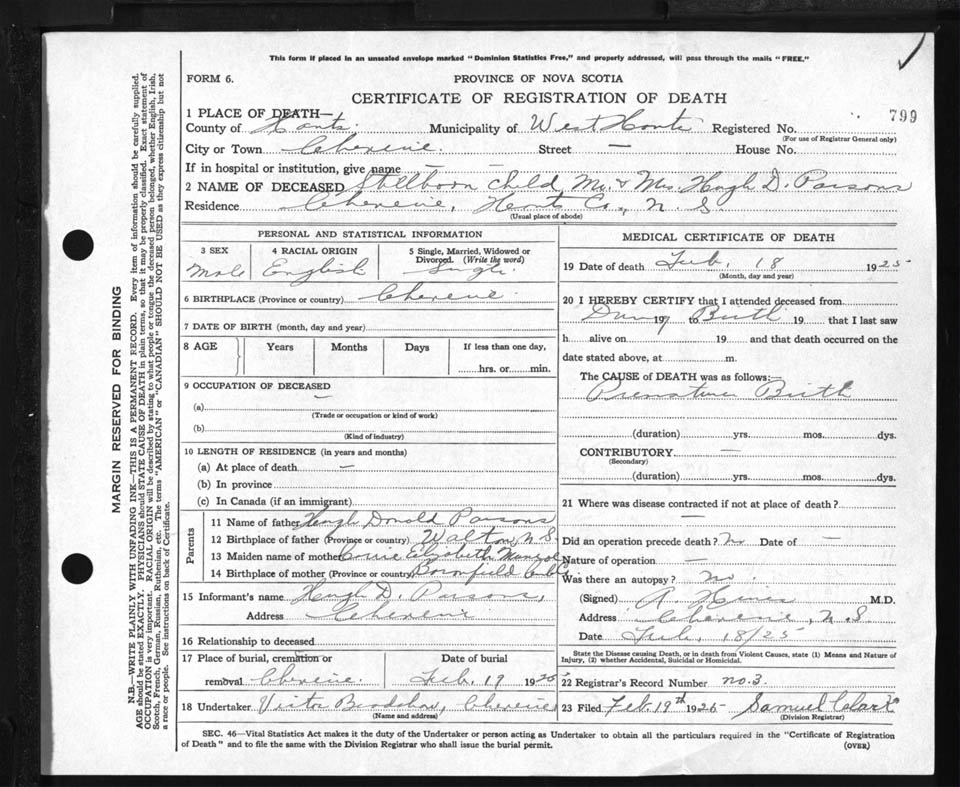 This form if placed in an unsealed envelope marked "Dominion Statistics Free," and properly addressed, will pass through the mails "FREE."
FORM 6. PROVINCE OF NOVA SCOTIA
CERTIFICATE OF REGISTRATION OF DEATH
799
1 PLACE OF DEATH—
County of Hants. Municipality of West Hants Registered No.
(For use of Registrar General only)
City or Town Cheverie. Street — House No.
If in hospital or institution, give name — —
2 NAME OF DECEASED Stillborn child, Mr. & Mrs. Hugh D. Parsons
Residence Cheverie, Hants Co., N. S.
(Usual place of abode)
PERSONAL AND STATISTICAL INFORMATION
3 SEX 4 RACIAL ORIGIN 5 Single, Married, Widowed or Divorced. (Write the word)
Male English Single.
6 BIRTHPLACE (Province or country) Cheverie
7 DATE OF BIRTH (month, day and year)
8 AGE Years Months Days If less than one day,
hrs. or min.
9 OCCUPATION OF DECEASED
(a) —
(Trade or occupation or kind of work)
(b)
(Kind of industry)
10 LENGTH OF RESIDENCE (in years and months)
(a) At place of death —
(b) In province
(c) In Canada (if an immigrant)
Parents
11 Name of father Hugh Donald Parsons
12 Birthplace of father (Province or country) Walton, N S.
13 Maiden name of mother Elizabeth
14 Birthplace of mother (Province or country)
15 Informant's name Hugh D. Parsons,
Address Cheverie
16 Relationship to deceased
17 Place of burial, cremation or removal Cheverie. Date of burial Feb. 19 1925
18 Undertaker Victor Bradshaw, Cheverie
(Name and address)
MEDICAL CERTIFICATE OF DEATH
19 Date of death Feb, 18 1925
(Month, day and year)
20 I HEREBY CERTIFY that I attended deceased from
During 19 to Birth 19 that I last saw
h alive on 19 and that death occurred on the
date stated above, at m.
The CAUSE of DEATH was as follows:—
Premature Birth
(duration) yrs. mos. dys.
CONTRIBUTORY —
(Secondary)
(duration) yrs. mos. dys.
21 Where was disease contracted if not at place of death?
—
Did an operation precede death? No Date of —
Nature of operation —
Was there an autopsy? no.
(Signed) M.D.
Address Cheverie, N. S
Date Feb, 18/25
State the Disease causing Death, or in death from Violent Causes, state (1) Means and Nature of Injury, (2) whether Accidental, Suicidal or Homicidal.
22 Registrar's Record Number no. 3.
23 Filed Feb. 19th 1925 Samuel Clark
(Division Registrar)
SEC. 46—Vital Statistics Act makes it the duty of the Undertaker or person acting as Undertaker to obtain all the particulars required in the "Certificate of Registration
of Death" and to file the same with the Division Registrar who shall issue the burial permit. (OVER)
MARGIN RESERVED FOR BINDING
N.B.—WRITE PLAINLY WITH UNFADING INK—THIS IS A PERMANENT RECORD. Every item of information should be carefully supplied.
AGE should be stated EXACTLY. PHYSICIANS should STATE CAUSE OF DEATH in plain terms, so that it may be properly classified. Exact statement of
OCCUPATION is very important. RACIAL ORIGIN will be described by stating to what people or tongue the deceased person belonged, whether English, Irish,
Scotch, French, German, Russian, Ruthenian, etc. The terms "AMERICAN" or "CANADIAN" SHOULD NOT BE USED as they express citizenship but not
a race or people. See instructions on back of Certificate.